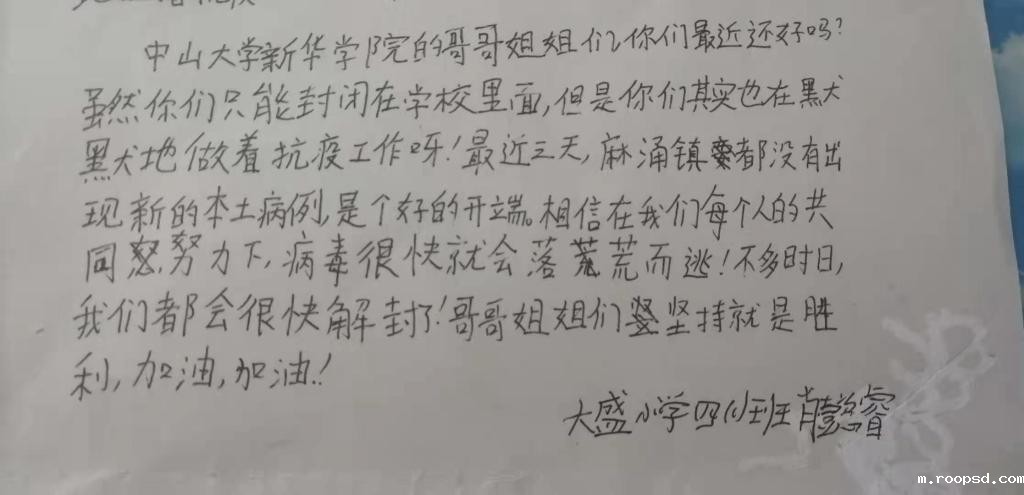 中山大学新华学院的哥哥姐姐们,你们最近还好吗?
虽然你们只能封闭在学校里面,但是你们其实也在黑犬
黑犬地做着抗疫工作呀!最近三天,麻涌镇都没有出
现新的本土病例,是个好的开端。相信在我们每个人的共
同努力下,病毒很快就会落荒而逃!不多时日,
我们都会很快解封了!哥哥姐姐们坚持就是胜
利,加油,加油!
大盛小学四(1)班 肖懿睿
m.roopsd.com